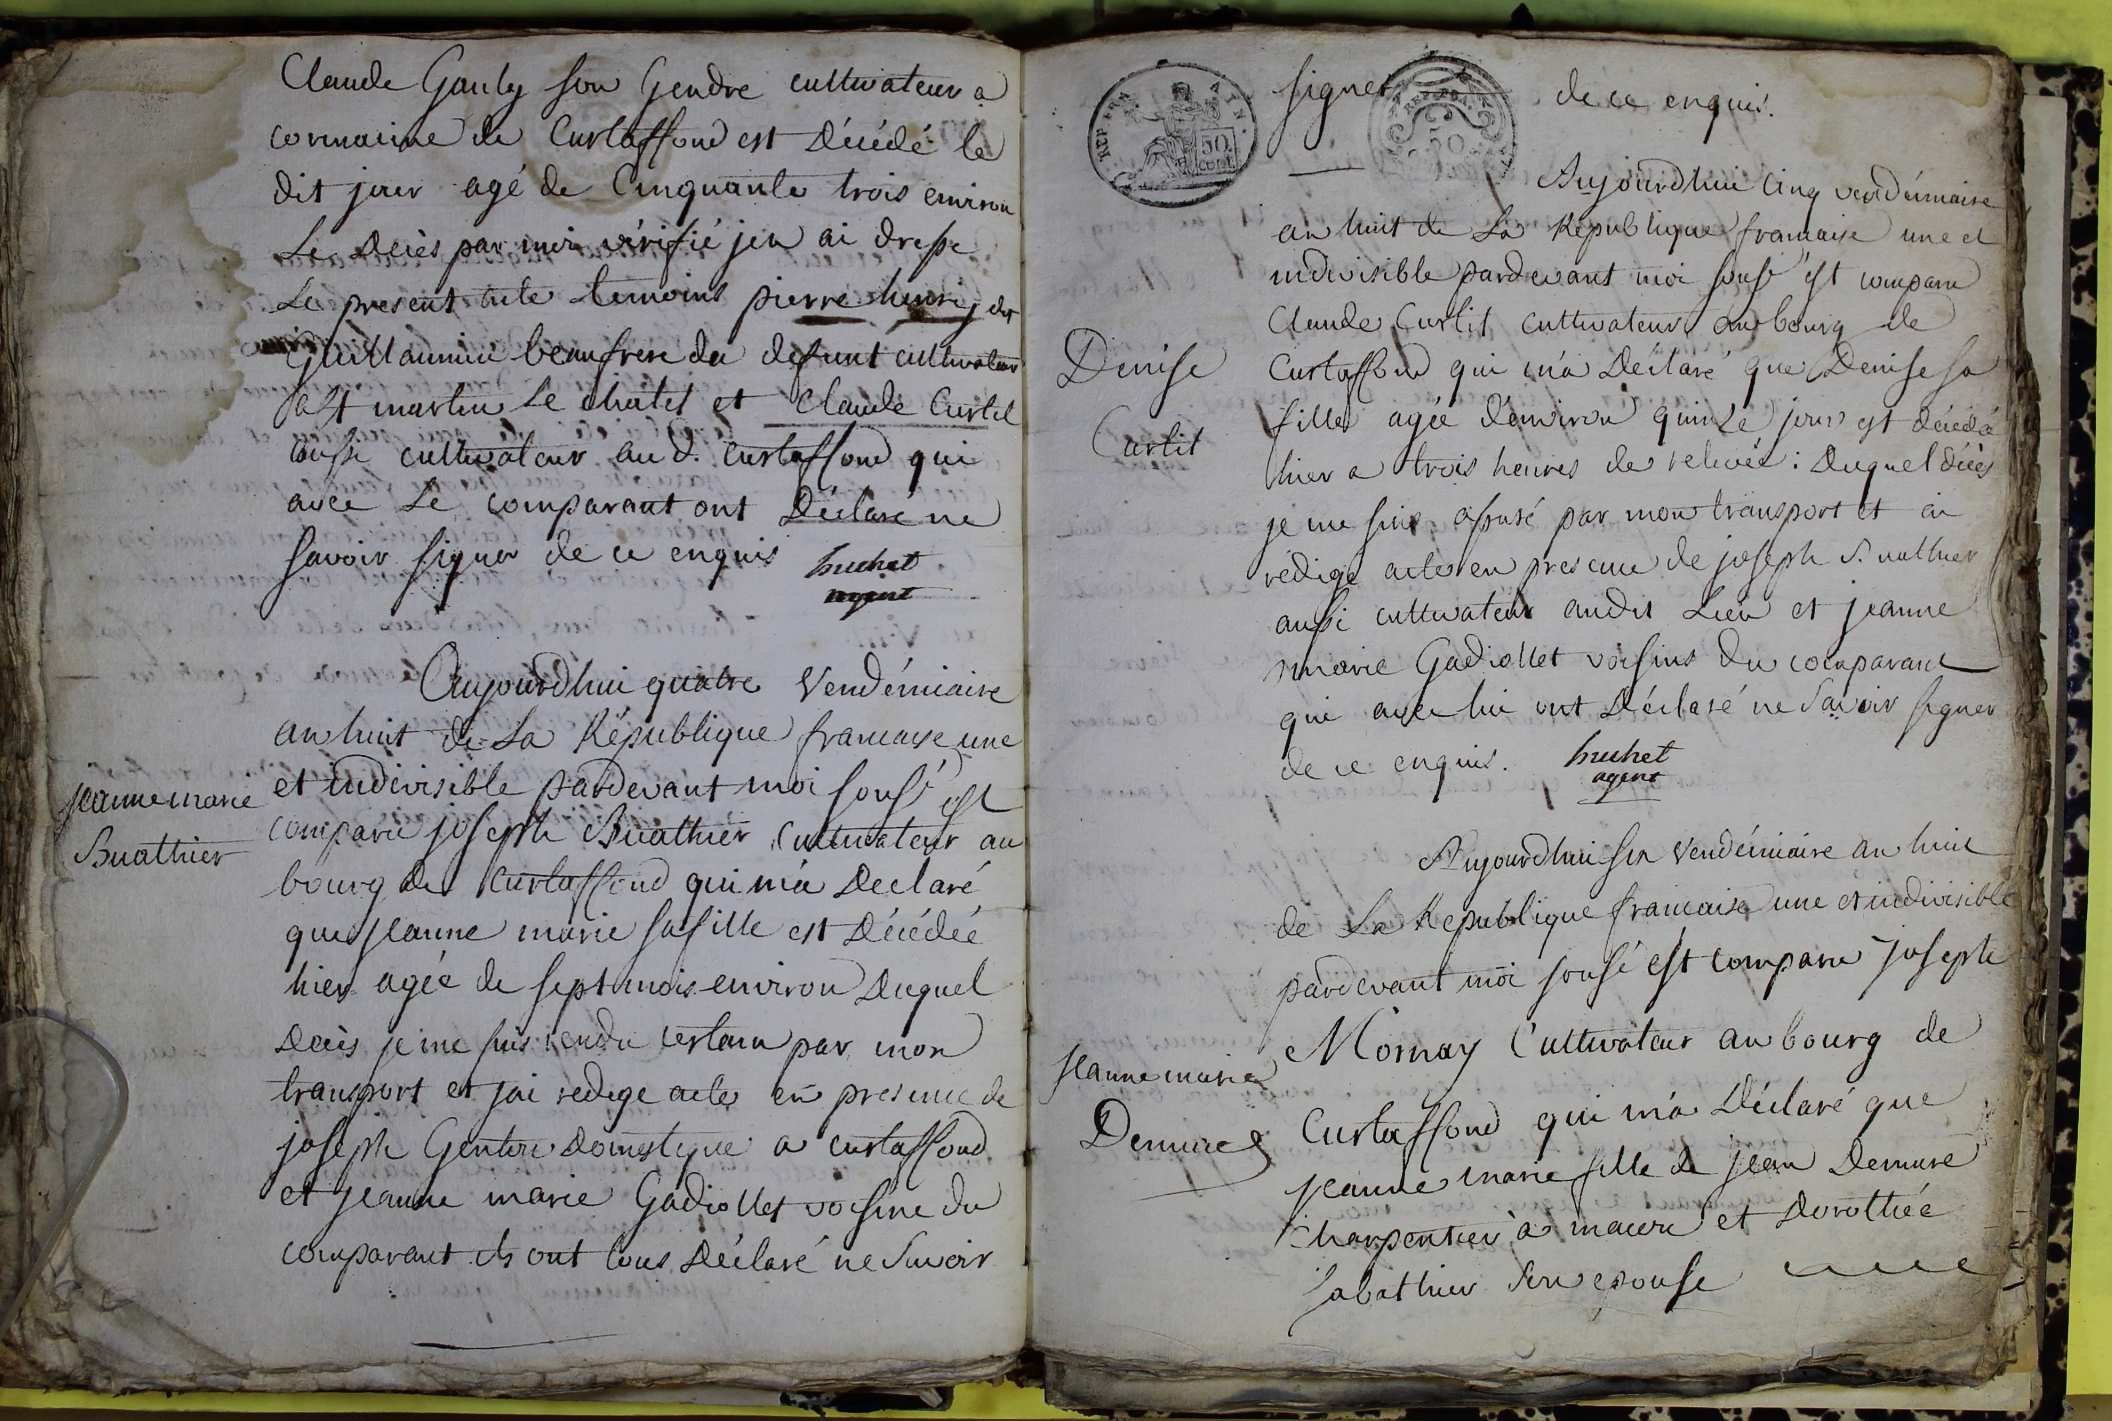 Claude Gauly son Gendre cultivateur a
cormaine de Curtaffond est Décédé le
dit jour agé de Cinquante trois environ
Le Décès par moi vérifié jen ai dressé
Le present acte temoins pierre henry dit
Guillaumin beaufrere du defunt cultivateur
a St martin Le chatel et Claude Curtil
aussi cultivateur au d. Curtaffond qui
avec Le comparant ont Déclaré ne
savoir signer de ce enquis
buchet
agent
Aujourdhui quatre Vendémiaire
an huit de La République francaise une
et indivisible pardevant moi sousé est
jeanne marie
Buathier
comparu joseph Buathier Cultivateur au
bourg de Curtaffond qui m'a Declaré
que jeanne marie sa fille est Décédée
hier agée de sept mois environ Duquel
Décès je me suis rendu certain par mon
transport et jai redige acte en presence de
joseph Genton Domestique a curtaffond
et jeanne marie Gadiollet voisine du
comparant ils ont tous Déclaré ne Savoir
REP. FRA. AIN.
50
cent.
signer de ce enquis.
Aujourdhui Cinq vendémiaire
an huit de La République francaise une et
indivisible pardevant moi sousé est comparu
Claude Curtil cultivateur au bourg de
Denise
Curtil
Curtaffond qui m'a Déclaré que Denise sa
fille agée d'environ quinze jours est décédée
hier a trois heures de relevée : Duquel décès
je me suis assuré par mon transport et ai
rédigé acte en presence de joseph Buathier
aussi cultivateur audit Lieu et jeanne
marie Gadiollet voisins du comparant
qui avec lui ont Déclaré ne Savoir signer
de ce enquis.
buchet
agent
Aujourdhui six Vendémiaire an huit
de La République francaise une et indivisible
pardevant moi sousé est comparu joseph
Mornay Cultivateur au bourg de
jeanne marie
Demure
Curtaffond qui m'a Déclaré que
jeanne marie fille de jean Demure
charpentier à macon et Dorothée
Sabathier Son epouse